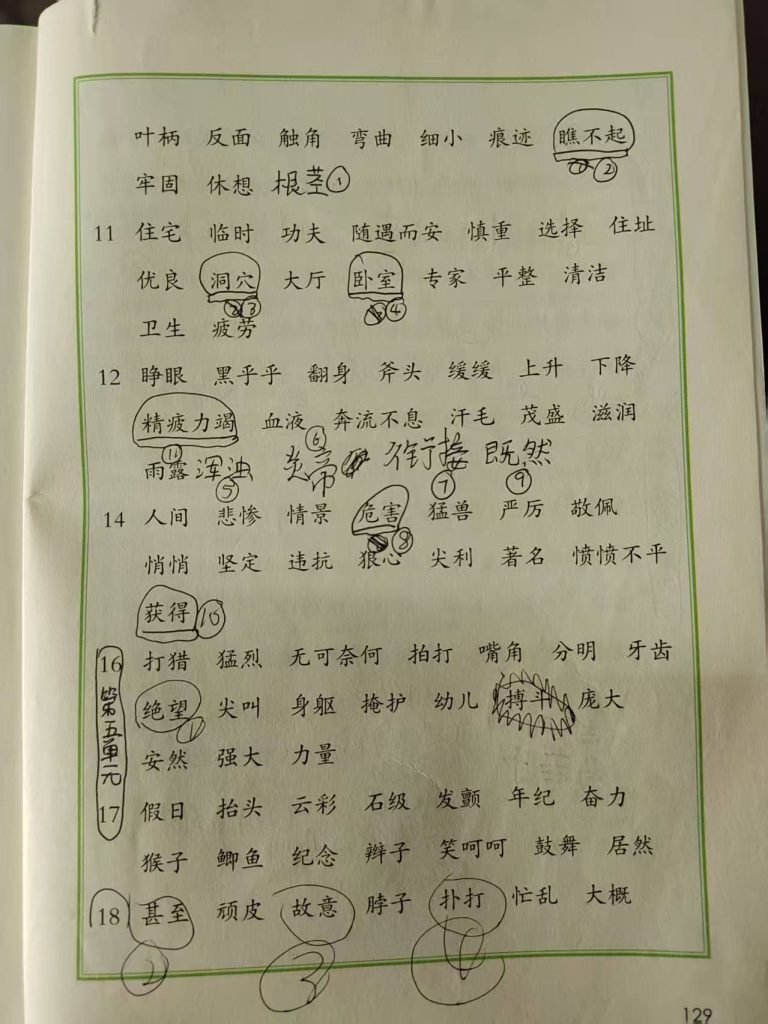 叶柄 反面 触角 弯曲 细小 痕迹 瞧不起
②
牢固 休想 根茎①
11 住宅 临时 功夫 随遇而安 慎重 选择 住址
优良 洞穴 大厅 卧室 专家 平整 清洁
③ ④
卫生 疲劳
12 睁眼 黑乎乎 翻身 斧头 缓缓 上升 下降
精疲力竭 血液 奔流不息 汗毛 茂盛 滋润
⑪ ⑥
雨露 浑浊 炎帝 衔接 既然
⑤ ⑦ ⑨
14 人间 悲惨 情景 危害 猛兽 严厉 敬佩
⑧
悄悄 坚定 违抗 狠心 尖利 著名 愤愤不平
获得 ⑩
16 打猎 猛烈 无可奈何 拍打 嘴角 分明 牙齿
第五单元
绝望 尖叫 身躯 掩护 幼儿 搏斗 庞大
①
安然 强大 力量
17 假日 抬头 云彩 石级 发颤 年纪 奋力
猴子 鲫鱼 纪念 辫子 笑呵呵 鼓舞 居然
18 甚至 顽皮 故意 脖子 扑打 忙乱 大概
② ③ ①
129